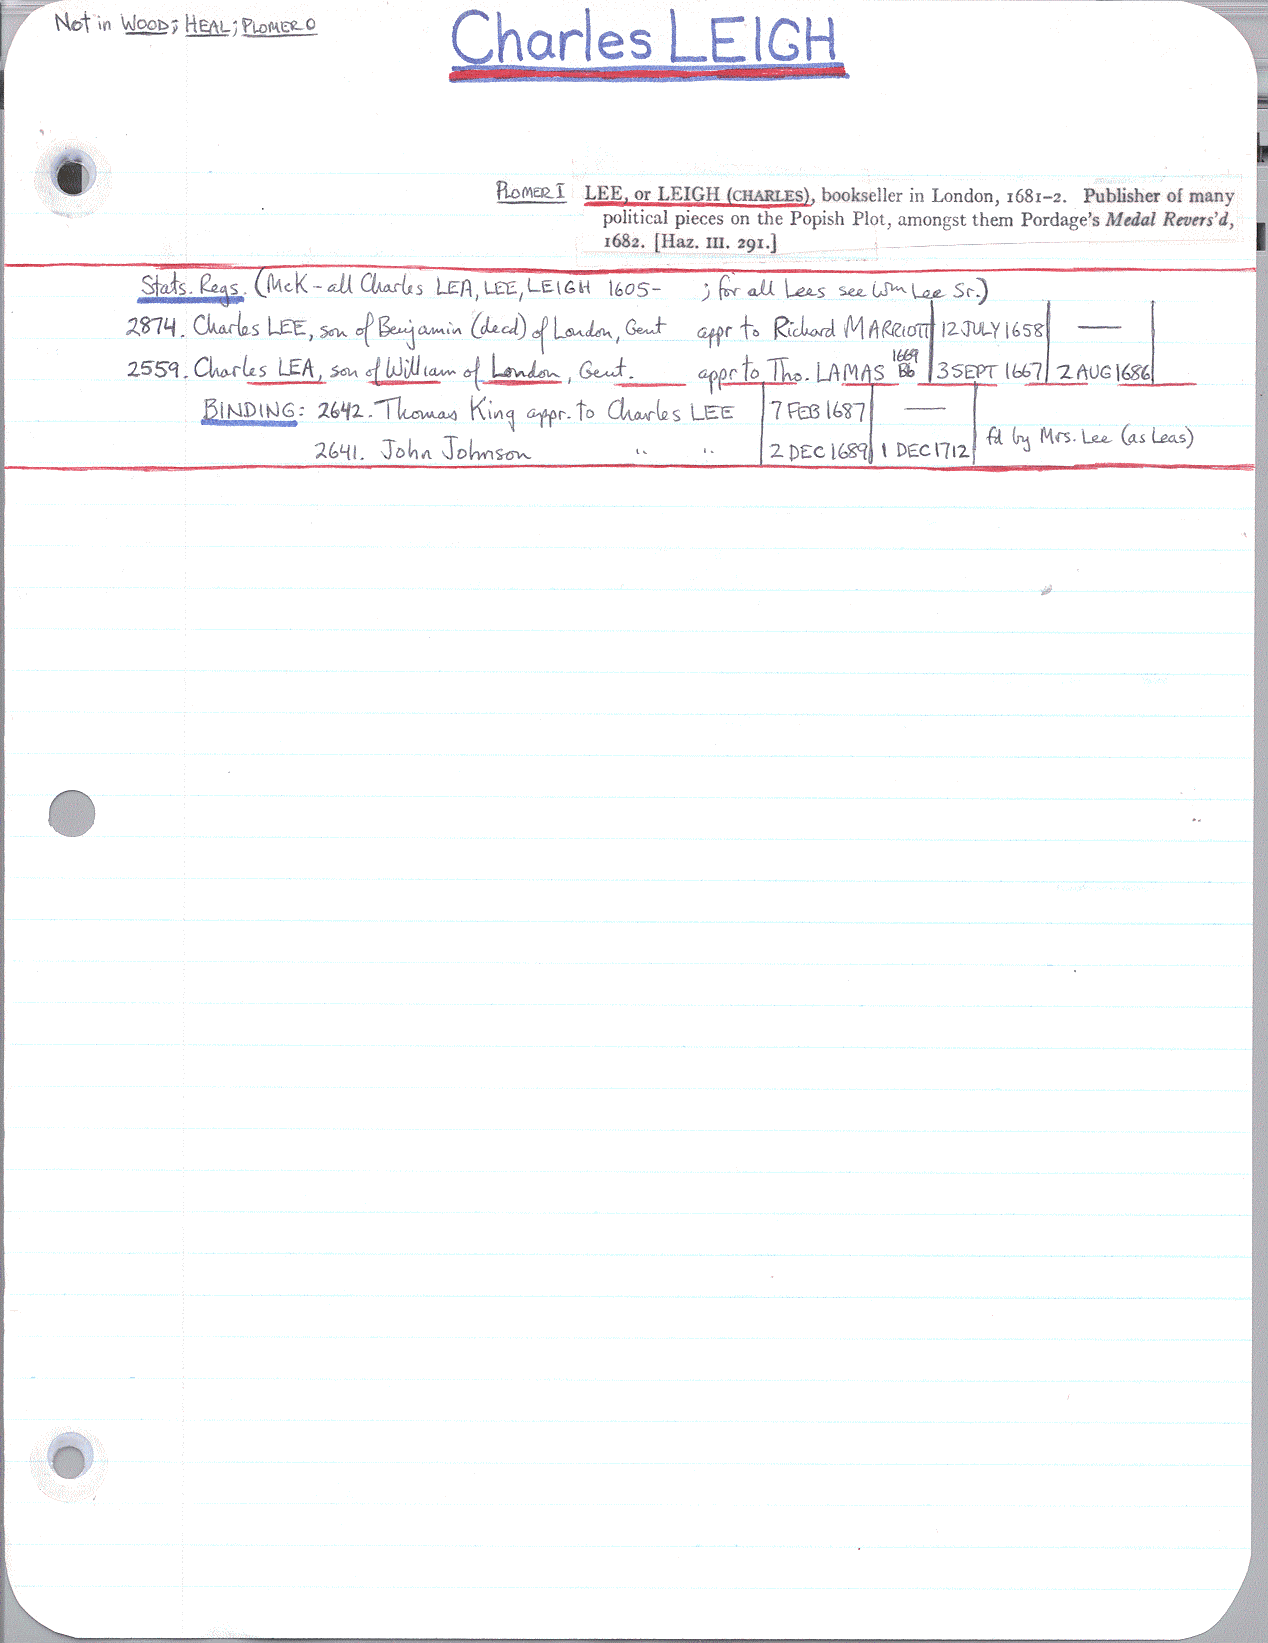 Not in WOOD; HEAL; PLOMER O
Charles LEIGH
PLOMER I LEE, or LEIGH (CHARLES), bookseller in London, 1681–2. Publisher of many
political pieces on the Popish Plot, amongst them Pordage's Medal Revers'd,
1682. [Haz. III. 291.]
Stats. Regs. (McK – all Charles LEA, LEE, LEIGH 1605– ; for all Lees see Wm Lee Sr.)
2874. Charles LEE, son of Benjamin (decd) of London, Gent appr to Richard MARRIOTT 12 JULY 1658 —
1669
2559. Charles LEA, son of William of London, Gent. appr to Tho. LAMAS 3 SEPT 1667 2 AUG 1686
BINDING: 2642. Thomas King appr. to Charles LEE 7 FEB 1687 —
2641. John Johnson " " 2 DEC 1689 1 DEC 1712 fd by Mrs. Lee (as Leas)